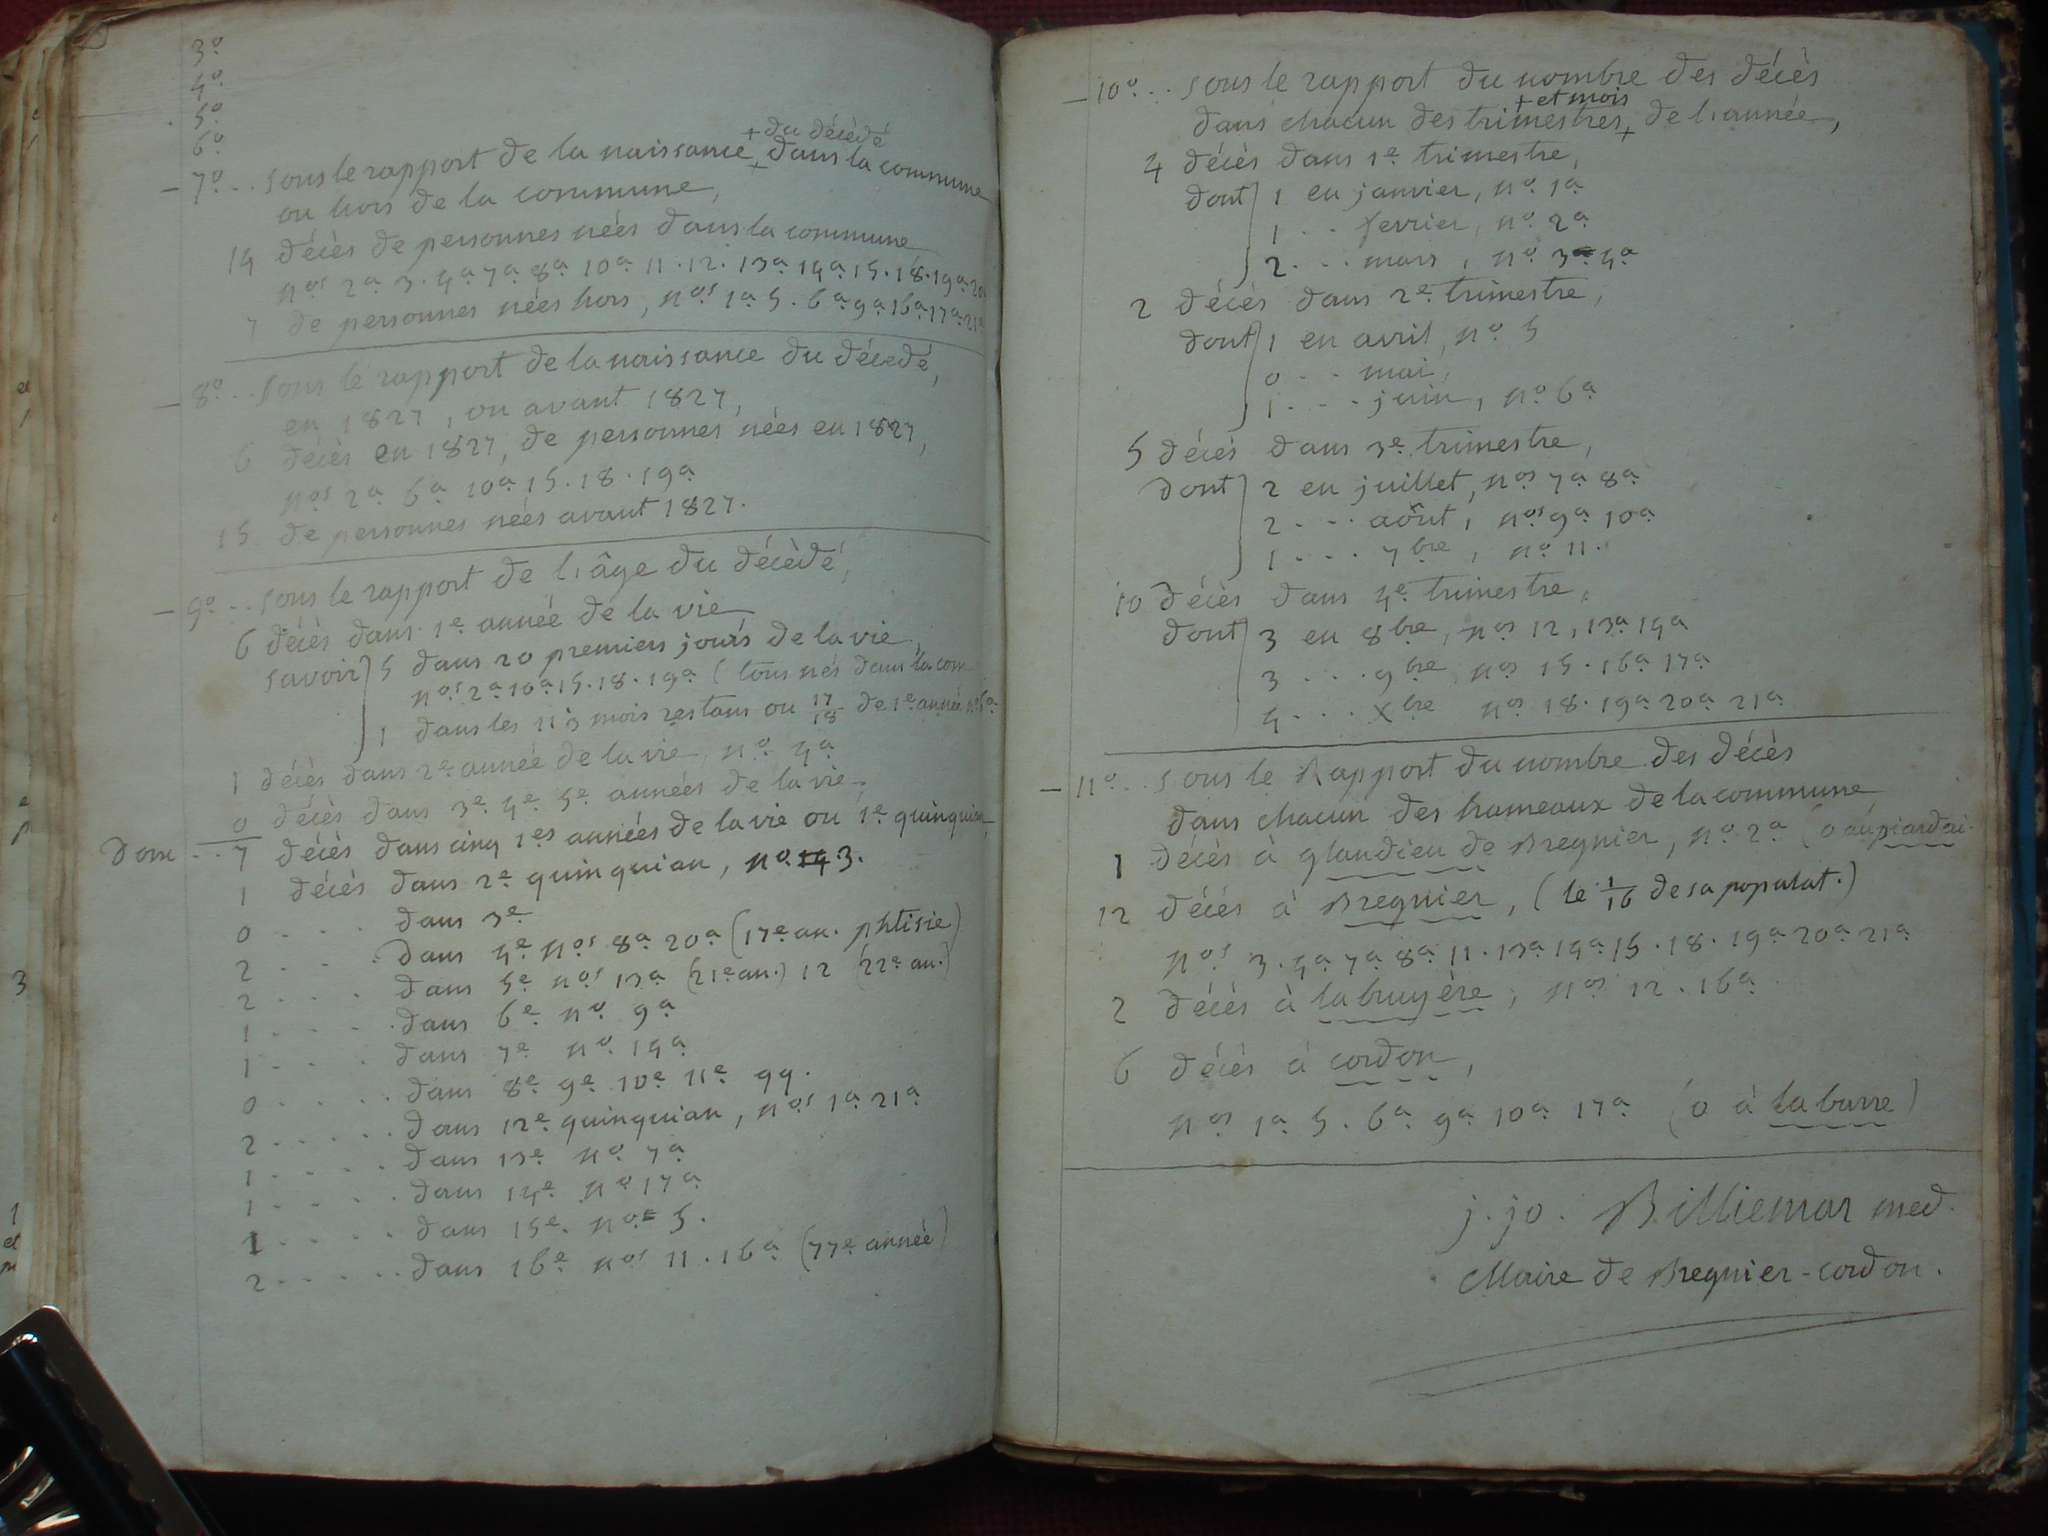 3º
4º
5º
6º
– 7º .. sous le rapport de la naissance + du décédé dans la commune
ou hors de la commune,
14 décès de personnes nées dans la commune
nos 2a 3. 4a 7a 8a 10a 11. 12. 13a 14a 15. 18. 19a 20a
7 de personnes nées hors, nos 1a 5. 6a 9a 16a 17a 21a
– 8º ... sous le rapport de la naissance du décédé,
en 1827, ou avant 1827,
6 décès en 1827, de personnes nées en 1827,
nos 2a 6a 10a 15. 18. 19a
15 de personnes nées avant 1827.
– 9º ... sous le rapport de l'âge du décédé,
6 décès dans 1e année de la vie
savoir 5 dans 20 premiers jours de la vie,
nos 2a 10a 15. 18. 19a (tous nés dans la com
1 dans les 11 mois restans ou 17/18 de 1e année nº 6a
1 décès dans 2e année de la vie, nº 4a
0 décès dans 3e 4e 5e années de la vie.
Donc .. 7 décès dans cinq 1es années de la vie ou 1e quinquian,
1 décès dans 2e quinquian, nº 3.
0 . . . dans 3e
2 . . . dans 4e nos 8a 20a (17e an. phtisie)
2 . . . . dans 5e nos 13a (21e an.) 12 (22e an.)
1 . . . . dans 6e nº 9a
1 . . . . dans 7e nº 14a
0 . . . . . dans 8e 9e 10e 11e qq.
2 . . . . . . dans 12e quinquian, nos 1a 21a
1 . . . . . dans 13e nº 7a
1 . . . . . dans 14e nº 17a
1 . . . . . dans 15e. nº 5.
2 . . . . . . dans 16e nos 11. 16a (77e année)
– 10º . . sous le rapport du nombre des décès
+ et mois
dans chacun des trimestres + de l'année,
4 décès dans 1e trimestre,
dont 1 en janvier, nº 1a
1 . . . fevrier, nº 2a
2 . . . mars, nº 3 4a
2 décès dans 2e trimestre,
dont 1 en avril, nº 5
0 . . . mai,
1 . . . . juin, nº 6a
5 décès dans 3e trimestre,
dont 2 en juillet, nos 7a 8a
2 . . . août, nos 9a 10a
1 . . . . 7bre, nº 11.
10 décès dans 4e trimestre,
dont 3 en 8bre, nos 12, 13a 14a
3 . . . 9bre nos 15. 16a 17a
4 . . . . Xbre nos 18. 19a 20a 21a
– 11º . . sous le Rapport du nombre des décès
dans chacun des hameaux de la commune
1 décès à glandieu de Bregnier, nº 2a (0 au
12 décès à Bregnier, (le 1/16 de sa populat.)
nos 3. 4a 7a 8a 11. 13a 14a 15. 18. 19a 20a 21a
2 décès à la bruyère, nos 12. 16a
6 décès à cordon,
nos 1a 5. 6a 9a 10a 17a (0 à la barre)
j. jo. Billiemaz med.
Maire de Bregnier-cordon.